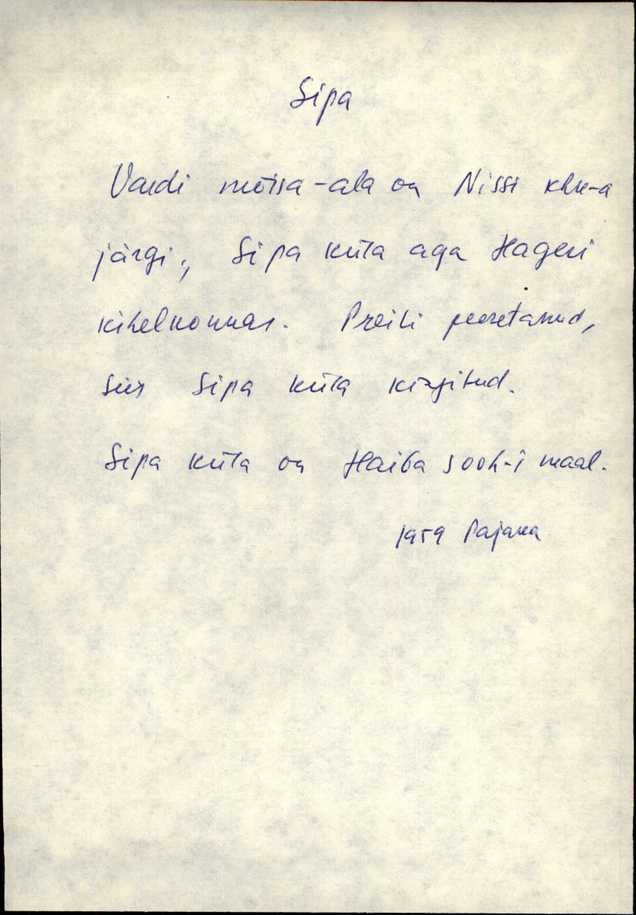 Sipa
Vardi mõisa-ala on Nissi khk-a
järgi; Sipa küla aga Hageri
kihelkonnas. Preili peeretanud,
siis Sipa küla kärgitud.
Sipa küla on Haiba sovh-i maal.